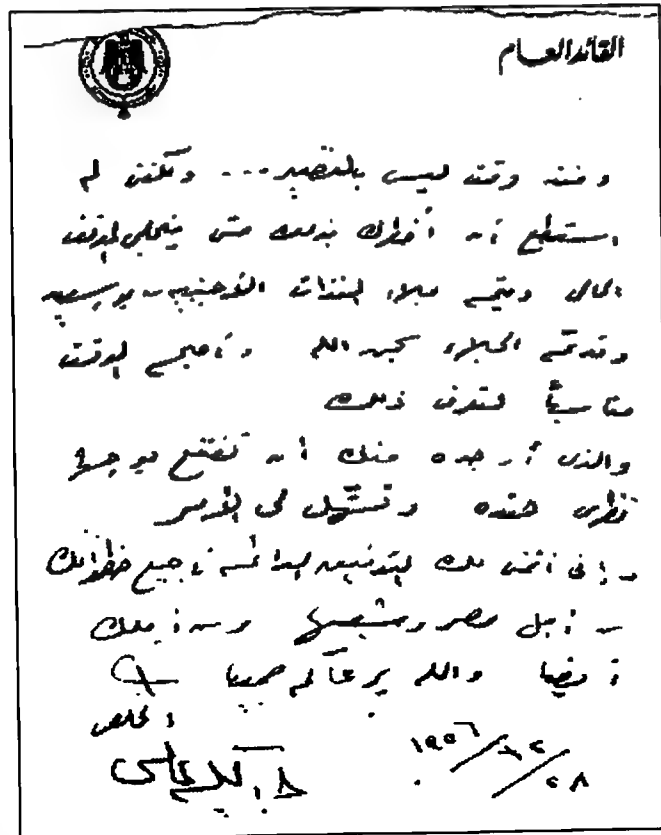 القائد العام
ومنذ وقت ليس بالقصير... ولكنني لم
استطع أن أخطرك بذلك حتى ينجلي الموقف
الحالي ويتم جلاء القوات الأجنبية عن بورسعيد
وقد تم الجلاء بحمد الله وأصبح الوقت
مناسباً لتعرف ذلك
والذي أرجوه منك أن تقتنع بوجهة
نظري هذه وتستهل في الأمر
وإني أتمنى لك التوفيق الدائم في جميع خطواتك
من أجل مصر وشعبها ومن أجلك
أيضا والله يرعاكم جميعا
المخلص
١٩٥٦/١٢/٢٨